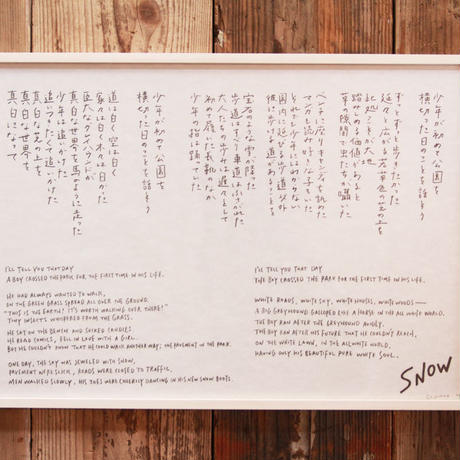 少年が初めて公園を
横切った日のことを話そう
ずっとずっと歩きたかった
延々と広がる若草色の芝の上を
此処こそが大地
踏みしめる価値があると
草の隙間で虫たちが囁いた
ベンチに座りキャンディを舐めた
マンガを読み好きな子もいた
けれど少年にはわからない
園内に延びる歩道以外
彼に歩ける道があることを
宝石のような雪が降った
歩道はすべり車道はふさがれた
大人たちの歩みは遅々として
初めて履いた長靴のなか
少年の指は踊っていた
少年が初めて公園を
横切った日のことを話そう
道は白く空は白く
家々は白く木々は白かった
巨大なグレイハウンドが
真白な世界を馬のように走った
少年は追いかけた
追いつけなくて追いかけた
真白な芝の上を
真白な世界を
真白になって
I'LL TELL YOU THAT DAY
A BOY CROSSED THE PARK FOR THE FIRST TIME IN HIS LIFE.
HE HAD ALWAYS WANTED TO WALK,
ON THE GREEN GRASS SPREAD ALL OVER THE GROUND.
"THIS IS THE EARTH! IT'S WORTH WALKING OVER THERE!"
TINY INSECTS WHISPERED FROM THE GRASS.
HE SAT ON THE BENCH AND SUCKED CANDIES.
HE READ COMICS, FELL IN LOVE WITH A GIRL.
BUT HE COULDN'T KNOW THAT HE COULD WALK ANOTHER WAY; THE PAVEMENT IN THE PARK.
ONE DAY, THE SKY WAS JEWELED WITH SNOW,
PAVEMENT WERE SLICK, ROADS WERE CLOSED TO TRAFFIC,
MEN WALKED SLOWLY, HIS TOES WERE CHEERILY DANCING IN HIS NEW SNOW BOOTS.
I'LL TELL YOU THAT DAY
THE BOY CROSSED THE PARK FOR THE FIRST TIME IN HIS LIFE.
WHITE ROADS, WHITE SKY, WHITE HOUSES, WHITE WOODS—
A BIG GREYHOUND GALLOPED LIKE A HORSE IN THE ALL WHITE WORLD.
THE BOY RAN AFTER THE GREYHOUND AVIDLY.
THE BOY RAN AFTER HIS FUTURE THAT HE COULDN'T REACH,
ON THE WHITE LAWN, IN THE ALL WHITE WORLD,
HAVING ONLY HIS BEAUTIFUL PURE WHITE SOUL.
SNOW